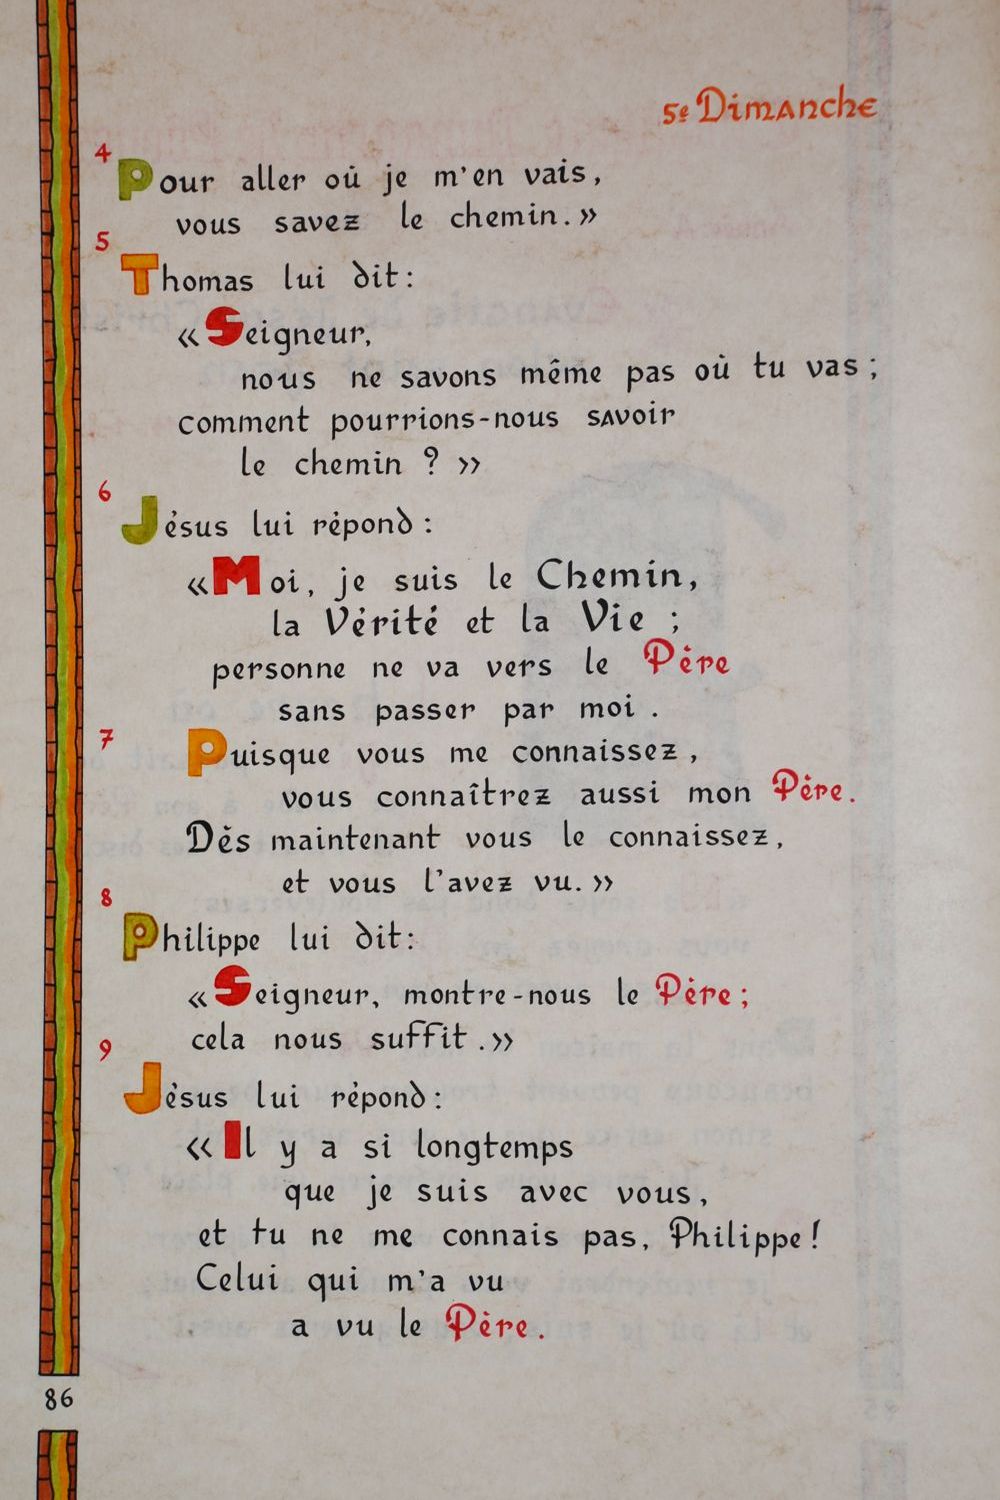 5e Dimanche
4
Pour aller où je m'en vais,
vous savez le chemin.»
5
Thomas lui dit:
«Seigneur,
nous ne savons même pas où tu vas;
comment pourrions-nous savoir
le chemin ? »
6
Jésus lui répond :
«Moi, je suis le Chemin,
la Vérité et la Vie ;
personne ne va vers le Père
sans passer par moi .
7
Puisque vous me connaissez,
vous connaîtrez aussi mon Père.
Dès maintenant vous le connaissez,
et vous l'avez vu.»
8
Philippe lui dit:
«Seigneur, montre-nous le Père;
cela nous suffit.»
9
Jésus lui répond:
«Il y a si longtemps
que je suis avec vous,
et tu ne me connais pas, Philippe!
Celui qui m'a vu
a vu le Père.
86